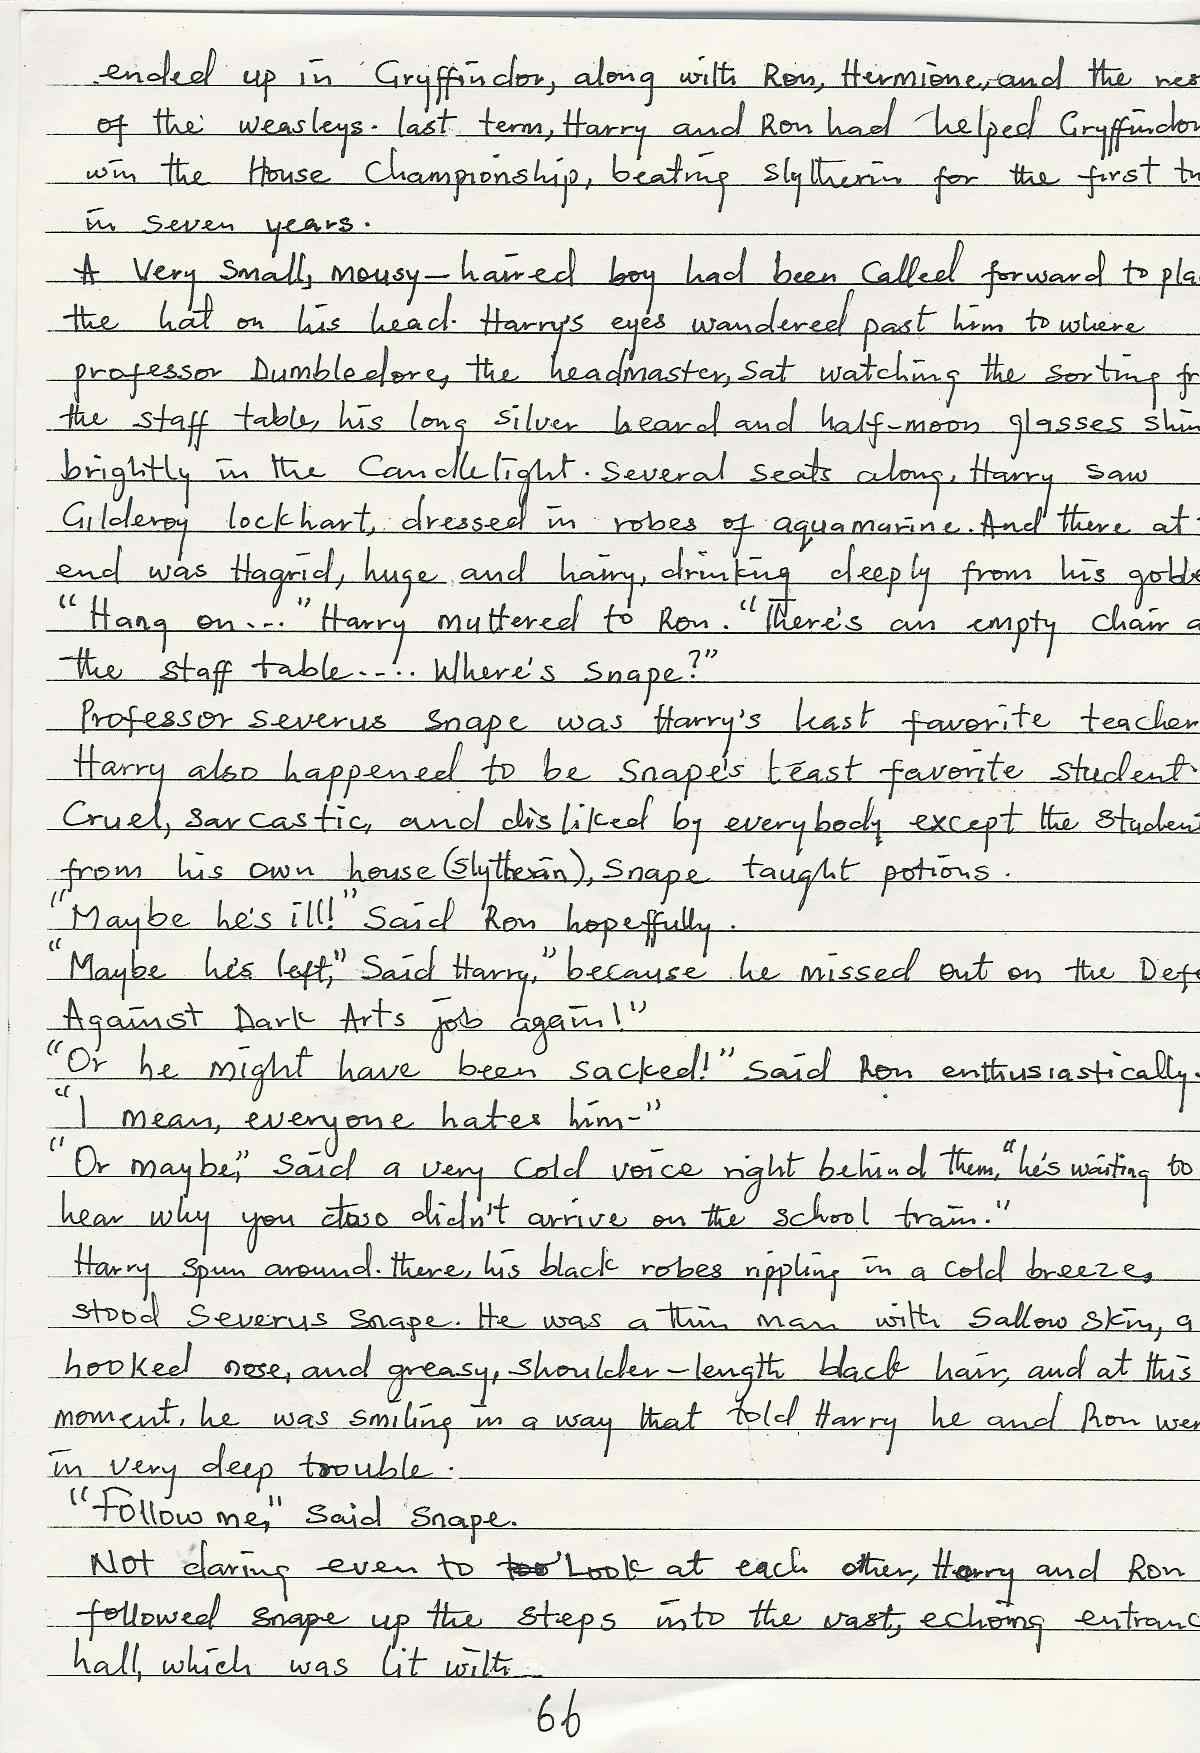 ended up in Gryffindor, along with Ron, Hermione, and the res
of the weasleys. last term, Harry and Ron had helped Gryffindor
win the House Championship, beating Slytherin for the first
in seven years.
A Very Small, mousy-haired boy had been Called forward to pla
the hat on his head. Harry's eyes wandered past him to where
professor Dumbledore, the headmaster, sat watching the sorting fr
the staff table, his long silver beard and half-moon glasses shin
brightly in the Candlelight. Several seats along, Harry saw
Gilderoy lockhart, dressed in robes of aquamarine. And there at
end was Hagrid, huge and hairy, drinking deeply from his goble
"Hang on..." Harry muttered to Ron. "There's an empty chair a
the staff table.... Where's Snape?"
Professor Severus Snape was Harry's least favorite teacher
Harry also happened to be Snape's least favorite student.
Cruel, sarcastic, and disliked by everybody except the Student
from his own house (Slytherin), Snape taught potions.
"Maybe he's ill!" Said Ron hopeffully.
"Maybe he's left," Said Harry," because he missed out on the Defe
Against Dark Arts job again!"
"Or he might have been sacked!" Said Ron enthusiastically.
"I mean, everyone hates him-"
"Or maybe," Said a very Cold voice right behind them, "he's waiting to
hear why you two didn't arrive on the school train."
Harry spun around. there, his black robes rippling in a cold breeze,
stood Severus Snape. He was a thin man with Sallow skin, a
hooked nose, and greasy, shoulder-length black hair, and at this
moment, he was smiling in a way that told Harry he and Ron wer
in very deep trouble.
"Follow me," Said Snape.
Not daring even to look at each other, Harry and Ron
followed Snape up the steps into the vast, echoing entranc
hall, which was lit with
66